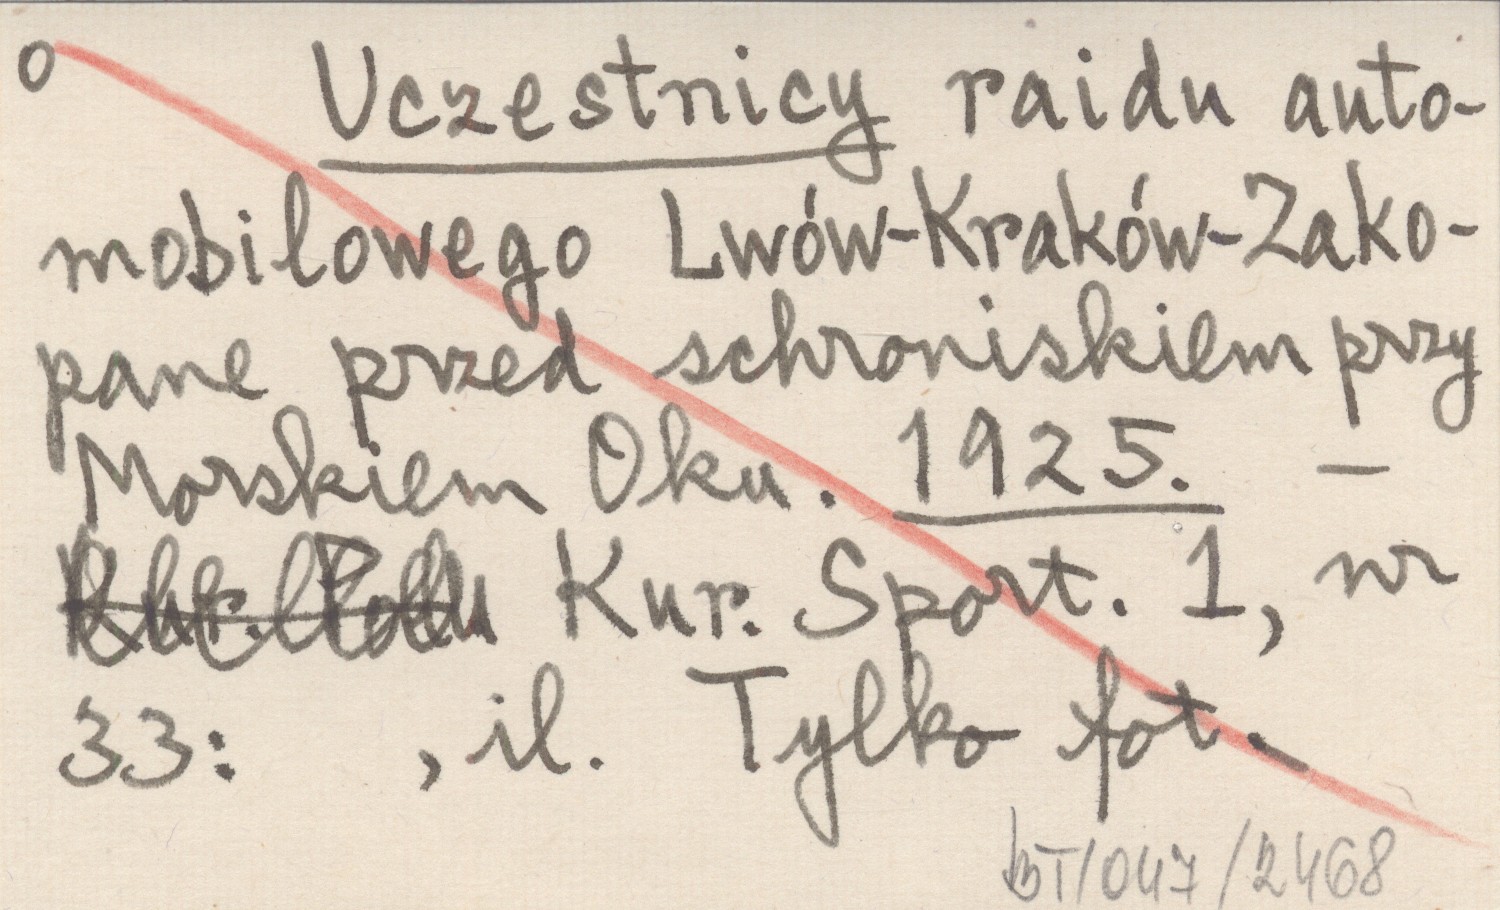 o Uczestnicy raidu auto-
mobilowego Lwów-Kraków-Zako-
pane przed schroniskiem przy
Morskiem Oku. 1925. —
Kur. Sport. 1, nr
33: , il. Tylko fot. -
BT/047/2468